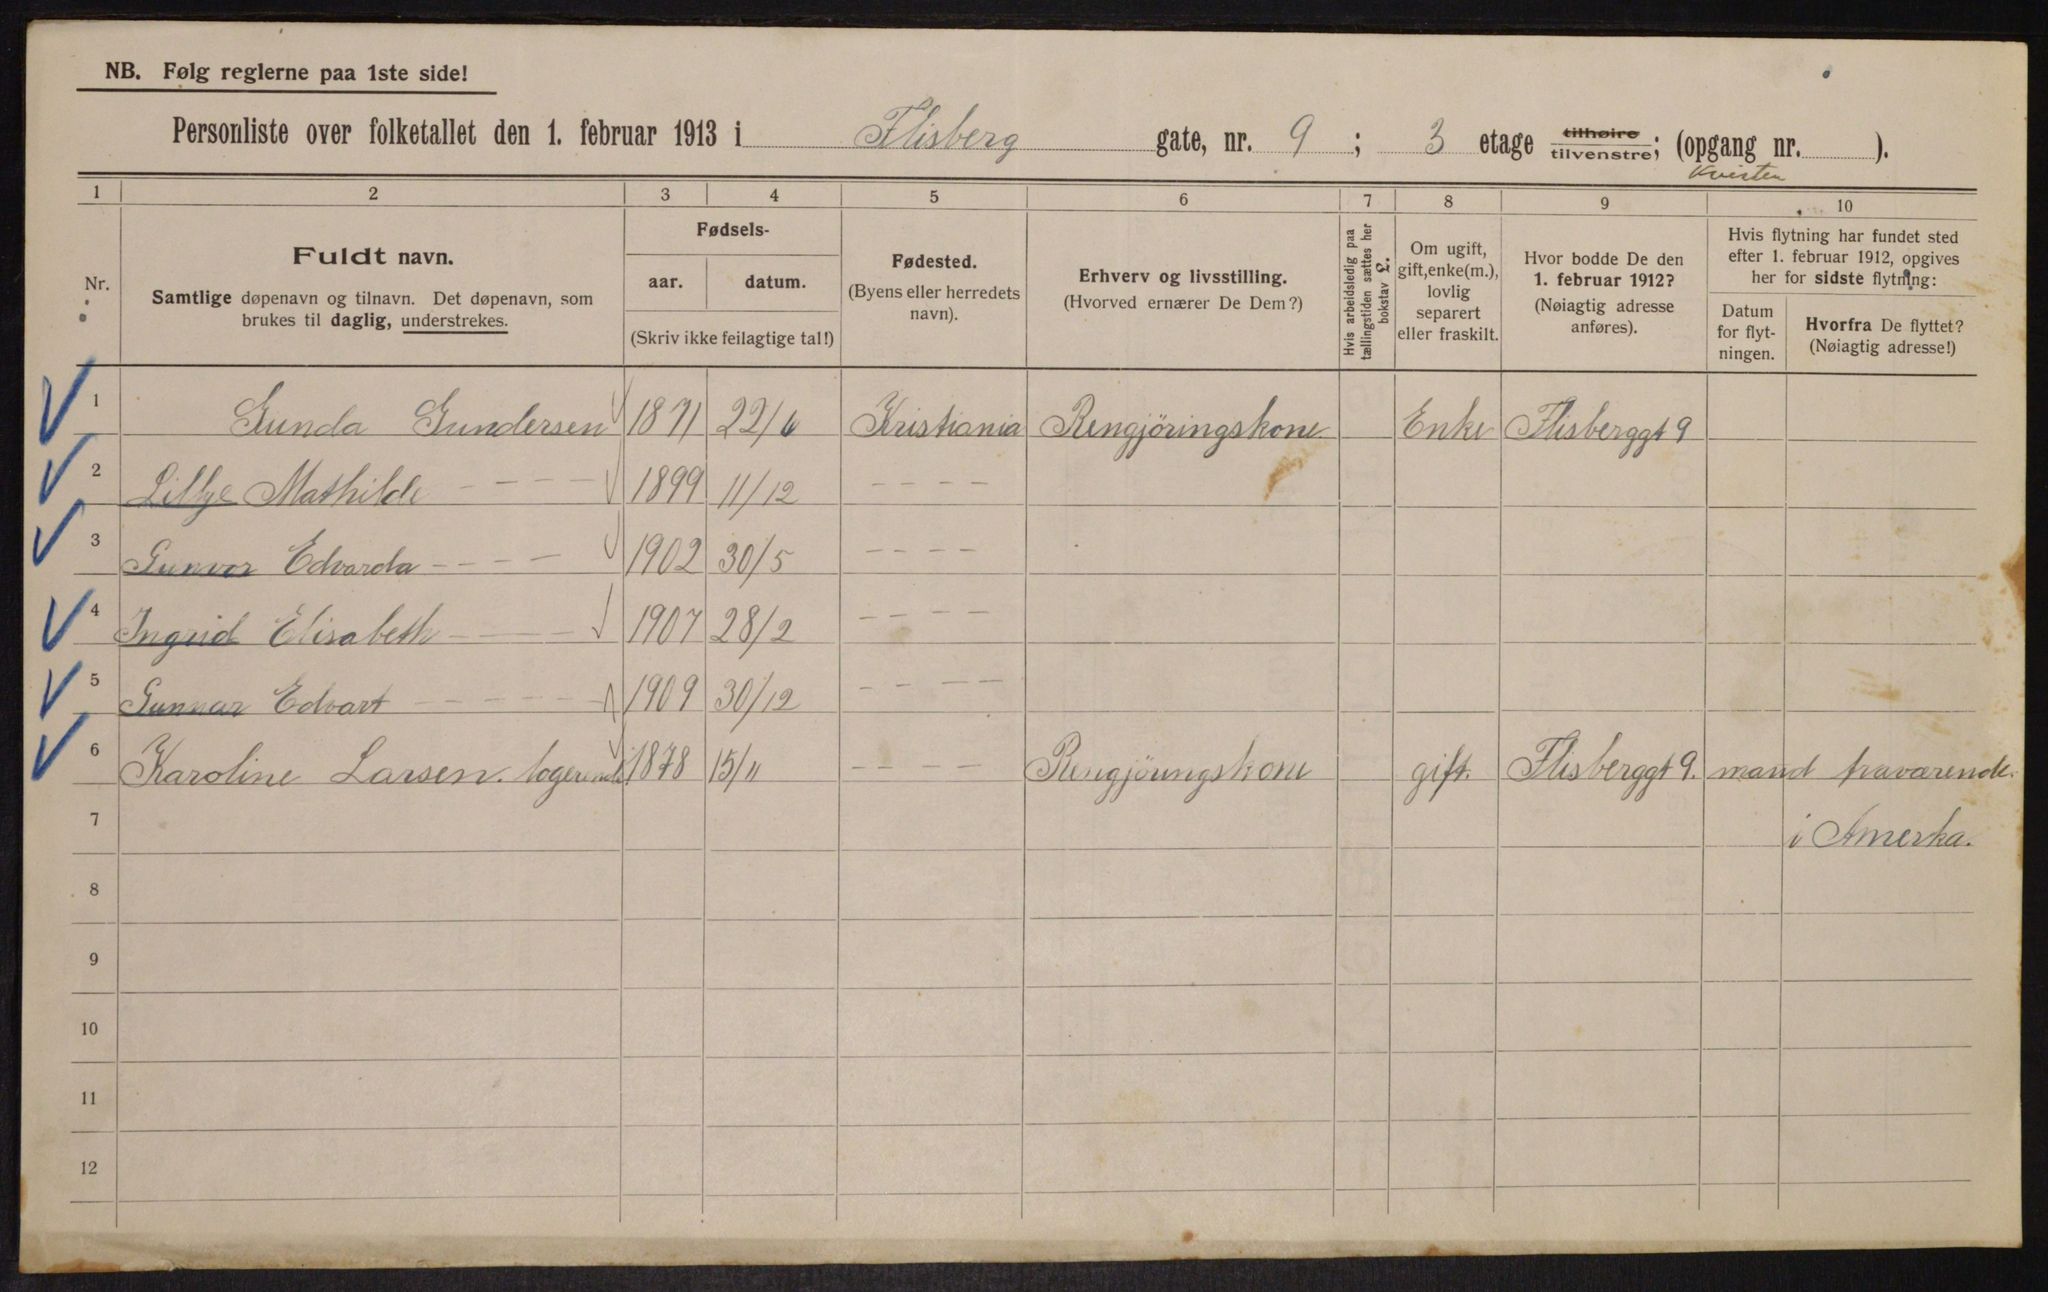 NB. Følg reglerne paa 1ste side!
Personliste over folketallet den 1. februar 1913 i Flisberg gate, nr. 9 ; 3 etage tilhøire tilvenstre; (opgang nr. ).
Kvisten
1 2 3 4 5 6 7 8 9 10
Nr.
Fuldt navn.
Samtlige døpenavn og tilnavn. Det døpenavn, som
brukes til daglig, understrekes.
Fødsels-
aar. datum.
(Skriv ikke feilagtige tal!)
Fødested.
(Byens eller herredets
navn).
Erhverv og livsstilling.
(Hvorved ernærer De Dem?)
Hvis arbeidsledig paa
tællingstiden sættes her
bokstav £.
Om ugift,
gift, enke(m.),
lovlig
separert
eller fraskilt.
Hvor bodde De den
1. februar 1912?
(Nøiagtig adresse
anføres).
Hvis flytning har fundet sted
efter 1. februar 1912, opgives
her for sidste flytning:
Datum
for flyt-
ningen.
Hvorfra De flyttet?
(Nøiagtig adresse!)
1 Gunda Gundersen 1871 22/6 Kristiania Rengjöringskone Enke Flisberggt 9
2 Lillye Mathilde - - - - 1899 11/12 - - - -
3 Gunvor Edvarda - - - - 1902 30/5 - - - -
4 Ingrid Elisabeth - - - 1907 28/2 - - - -
5 Gunnar Edvart - - - - - 1909 30/12 - - - -
6 Karoline Larsen. logerende. 1878 15/11 - - - - Rengjöringskone gift. Flisberggt 9. mand fraværende.
7 i Amerka.
8
9
10
11
12